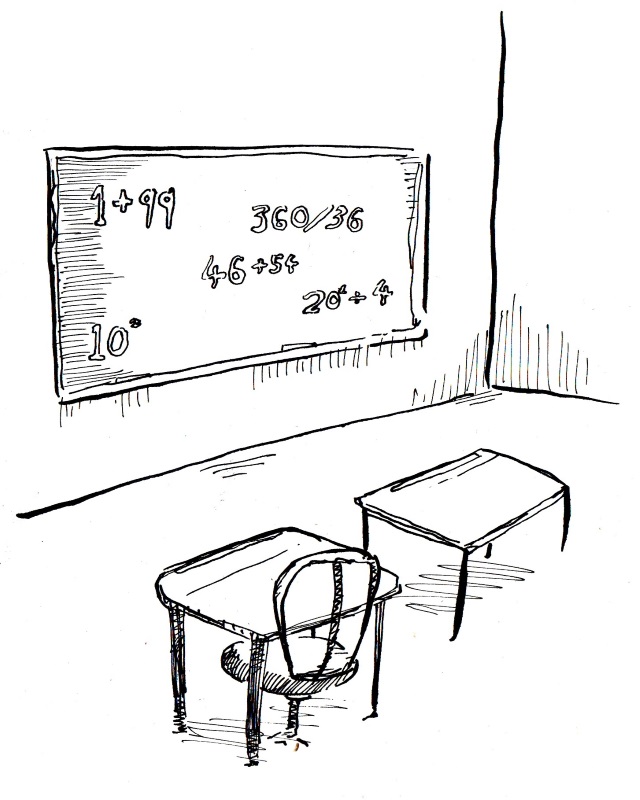 1+99
360/36
46+54
20²÷4
10²